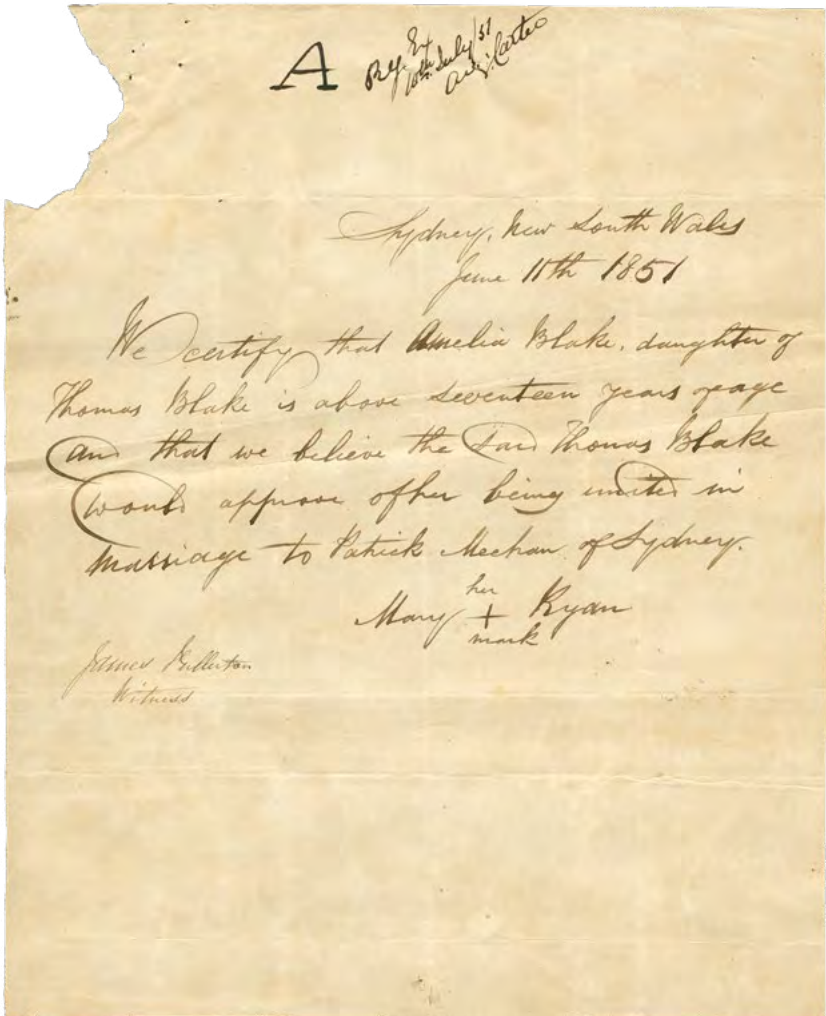 A
Reg. Ex
10th July /51
Carter
Sydney, New South Wales
June 11th 1851
We certify that Amelia Blake, daughter of
Thomas Blake is above seventeen years of age
and that we believe the said Thomas Blake
would approve of her being united in
marriage to Patrick Meehan of Sydney.
her
Mary + Ryan
mark
James Fullerton
Witness